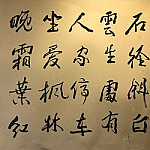 石径斜白
雲生處有
人家停車
坐爱枫林
晚霜葉红